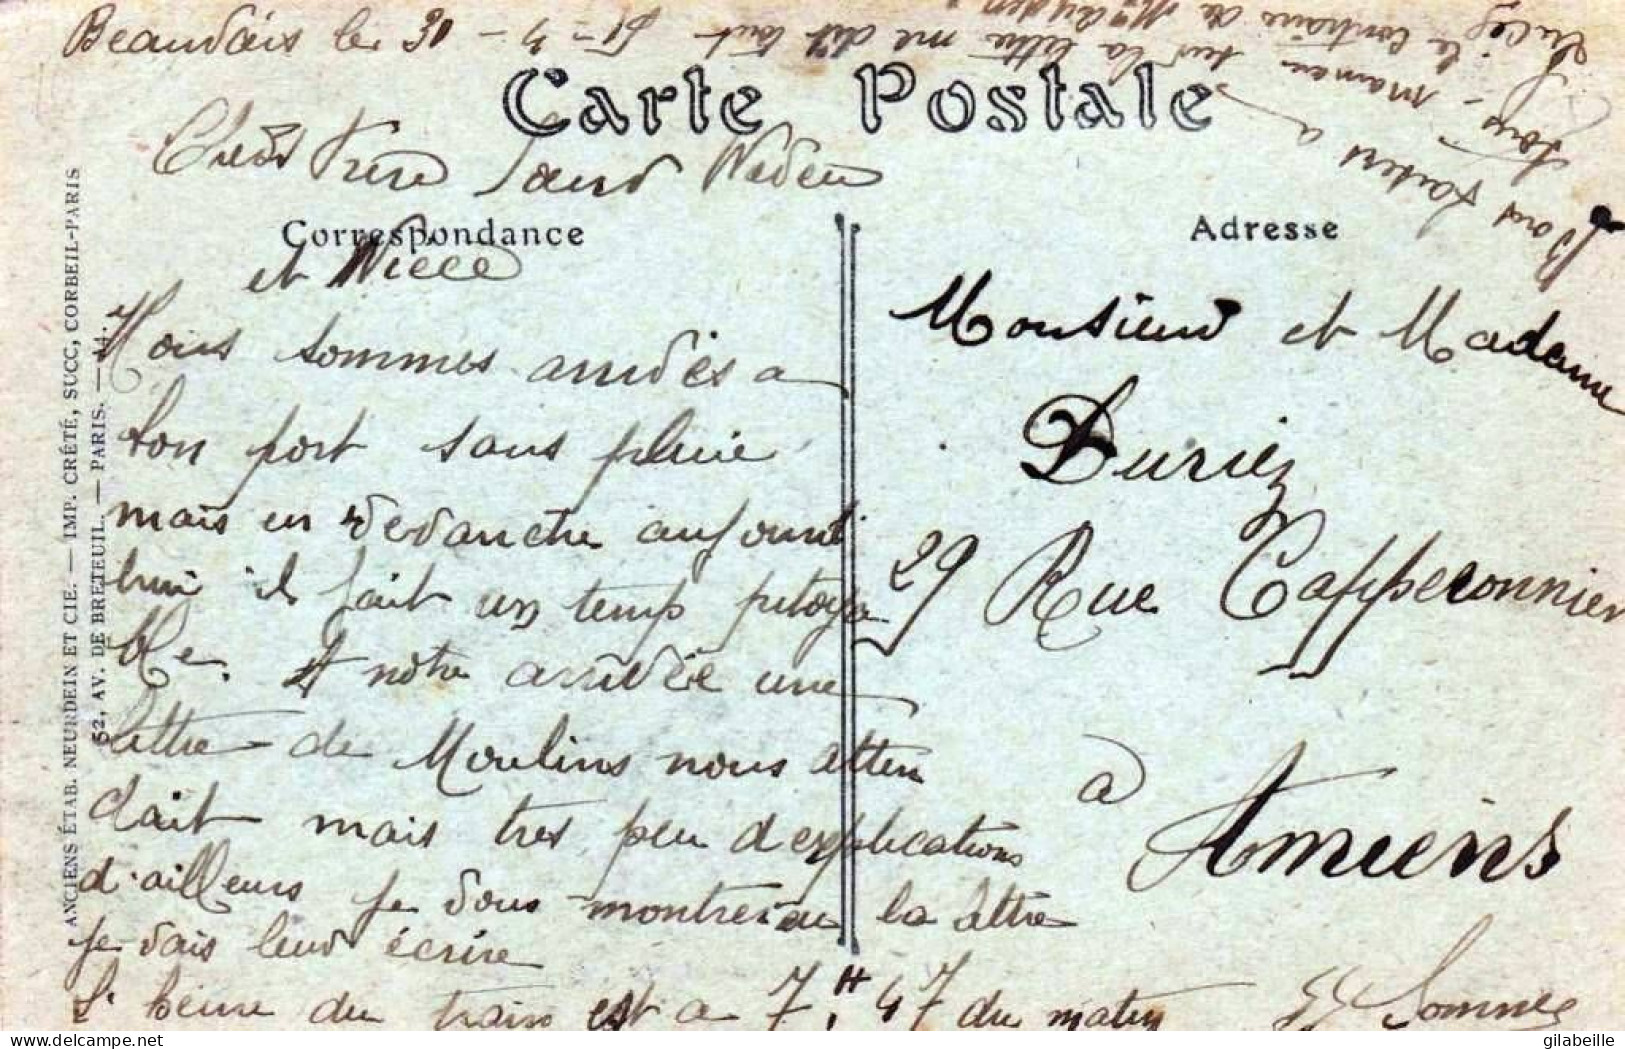 Beauvais le 30 - 4 - 51
Carte Postale
Chers Frère Sœur Neveu
Correspondance
et Nièce
Nous sommes arrivés a
bon port sans pluie
mais en revanche aujourd
hui il fait un temp pitoya
ble. A notre arrivée une
lettre de Moulins nous atten
dait mais tres peu d explications
d'ailleurs je vous montrerai la lettre
je vais leur écrire
L' heure du train est a 7 H 47 du matin
Adresse
Monsieur et Madame
Duriez
29 Rue Capperonnier
à
Amiens
Somme
Bons baisers a
tous - maman sur la lettre me dit tout
le contraire de
ANCIENS ÉTAB. NEURDEIN ET CIE. — IMP. CRÉTÉ, SUCC, CORBEIL-PARIS
52, AV. DE BRETEUIL. — PARIS. —
gilabeille